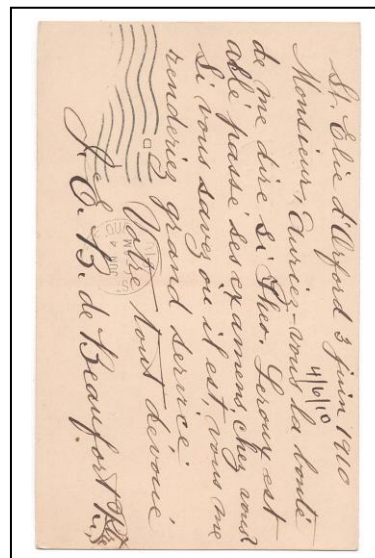 St. Elie d'Orford 3 juin 1910
4/6/10
Monsieur, Auriez-vous la bonté
de me dire si Theo. Leroux est
allé passé ses examens chez vous?
Si vous savez ou il est, vous me
renderiez grand service.
Votre tout dévoué
E. B. de Beaufort
JUN 4